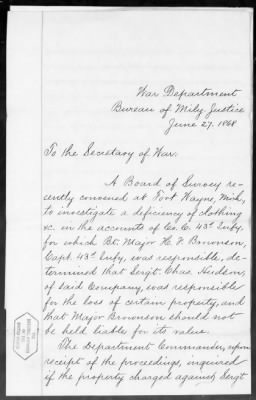 War Department
Bureau of Mily. Justice
June 27. 1868
To the Secretary of War.
A Board of Survey re-
cently convened at Fort Wayne, Mich,
to investigate a deficiency of clothing
&c. in the accounts of Co. C. 43d Infy.
for which Bt. Major H. F. Brownson,
Capt. 43d Infy, was responsible, de-
termined that Sergt. Chas. Hudson,
of said Company, was responsible
for the loss of certain property, and
that Major Brownson should not
be held liable for its value.
The Department Commander, upon
receipt of the proceedings, inquired
if the property charged against Sergt